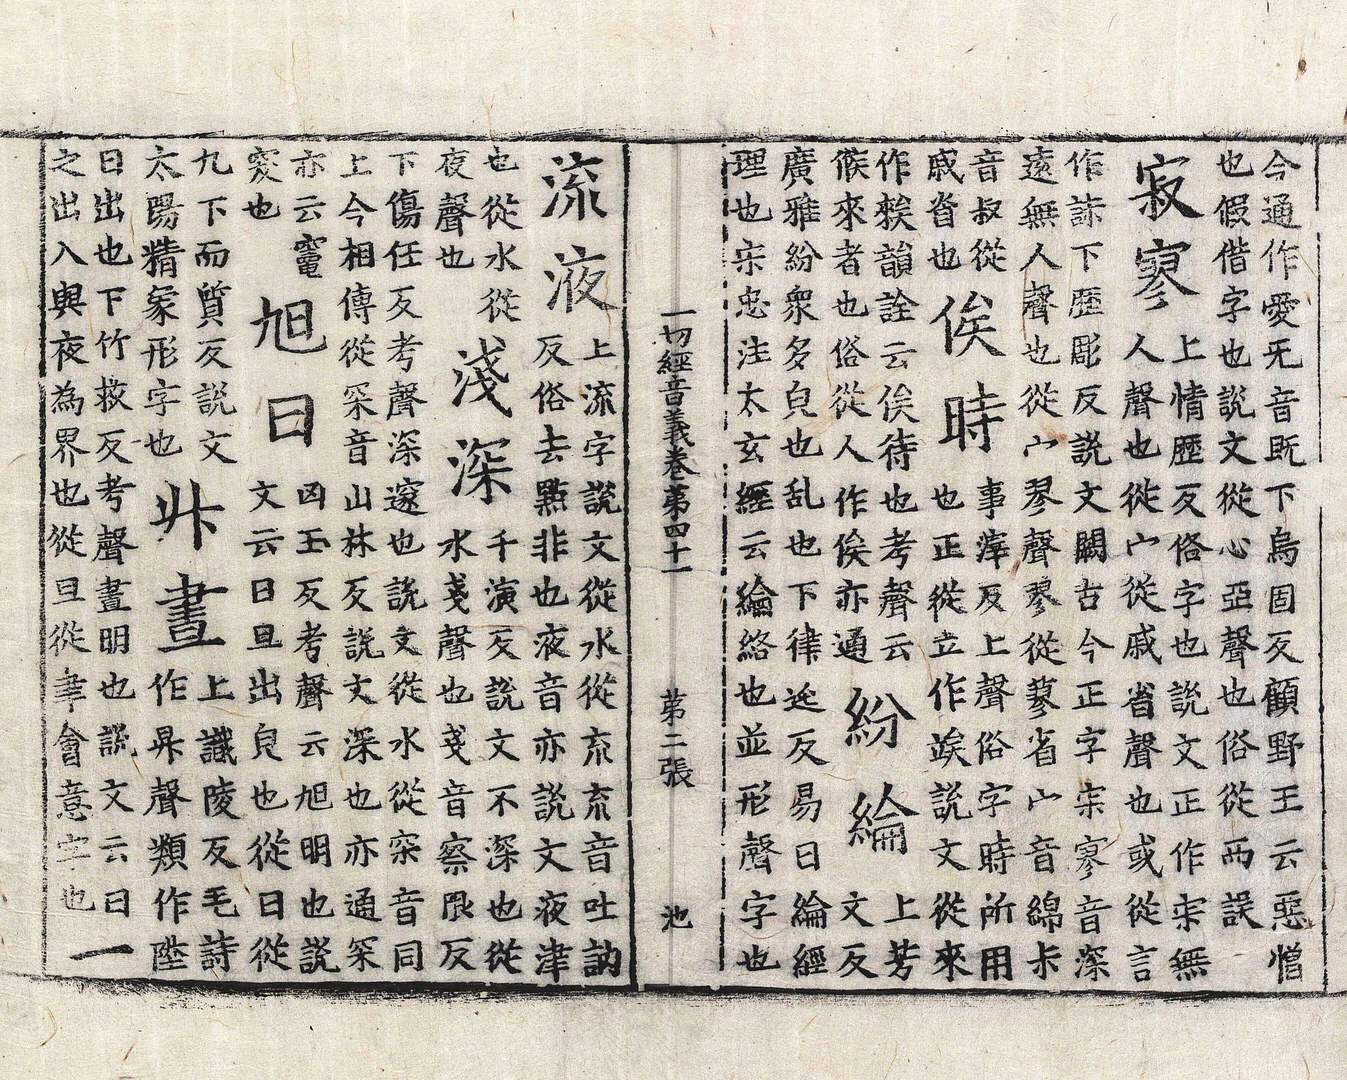 今通作愛旡音旣下烏固反顧野王云惡憎
也假借字也說文從心亞聲也俗從西誤
寂寥
上情歷反俗字也說文正作宋無
人聲也從宀從戚省聲也或從言
作誄下歷彫反說文闕古今正字宋寥音深
遠無人聲也從宀翏聲翏從蓼省宀音綿卡
音叔從
戚㫺也
俟時
事滓反上聲俗字時所用
也正從立作竢說文從來
作𥏳韻詮云俟待也考聲云
㑨來者也俗從人作俟亦通
紛綸
上芳
文反
廣雅紛衆多皃也乱也下律迍反易曰綸經
理也宋忠注太玄經云綸絡也並形聲字也
一切經音義卷第四十一 第二張 池
流液
上流字說文從水從㐬㐬音吐訥
反俗去點非也液音亦說文液津
也從水從
夜聲也
淺深
千演反說文不深也從
水戔聲也戔音察限反
下傷任反考聲深邃也說文從水從罙音同
上今相傳從罙音山林反說文深也亦通罙
亦云竈
突也
旭日
凶玉反考聲云旭明也說
文云日旦出皃也從日從
九下而質反說文
太陽精象形字也
升晝
上讖陵反毛詩
作昇聲類作陞
曰出也下竹救反考聲晝明也說文云日
之出入與夜為界也從旦從聿會意字也
一